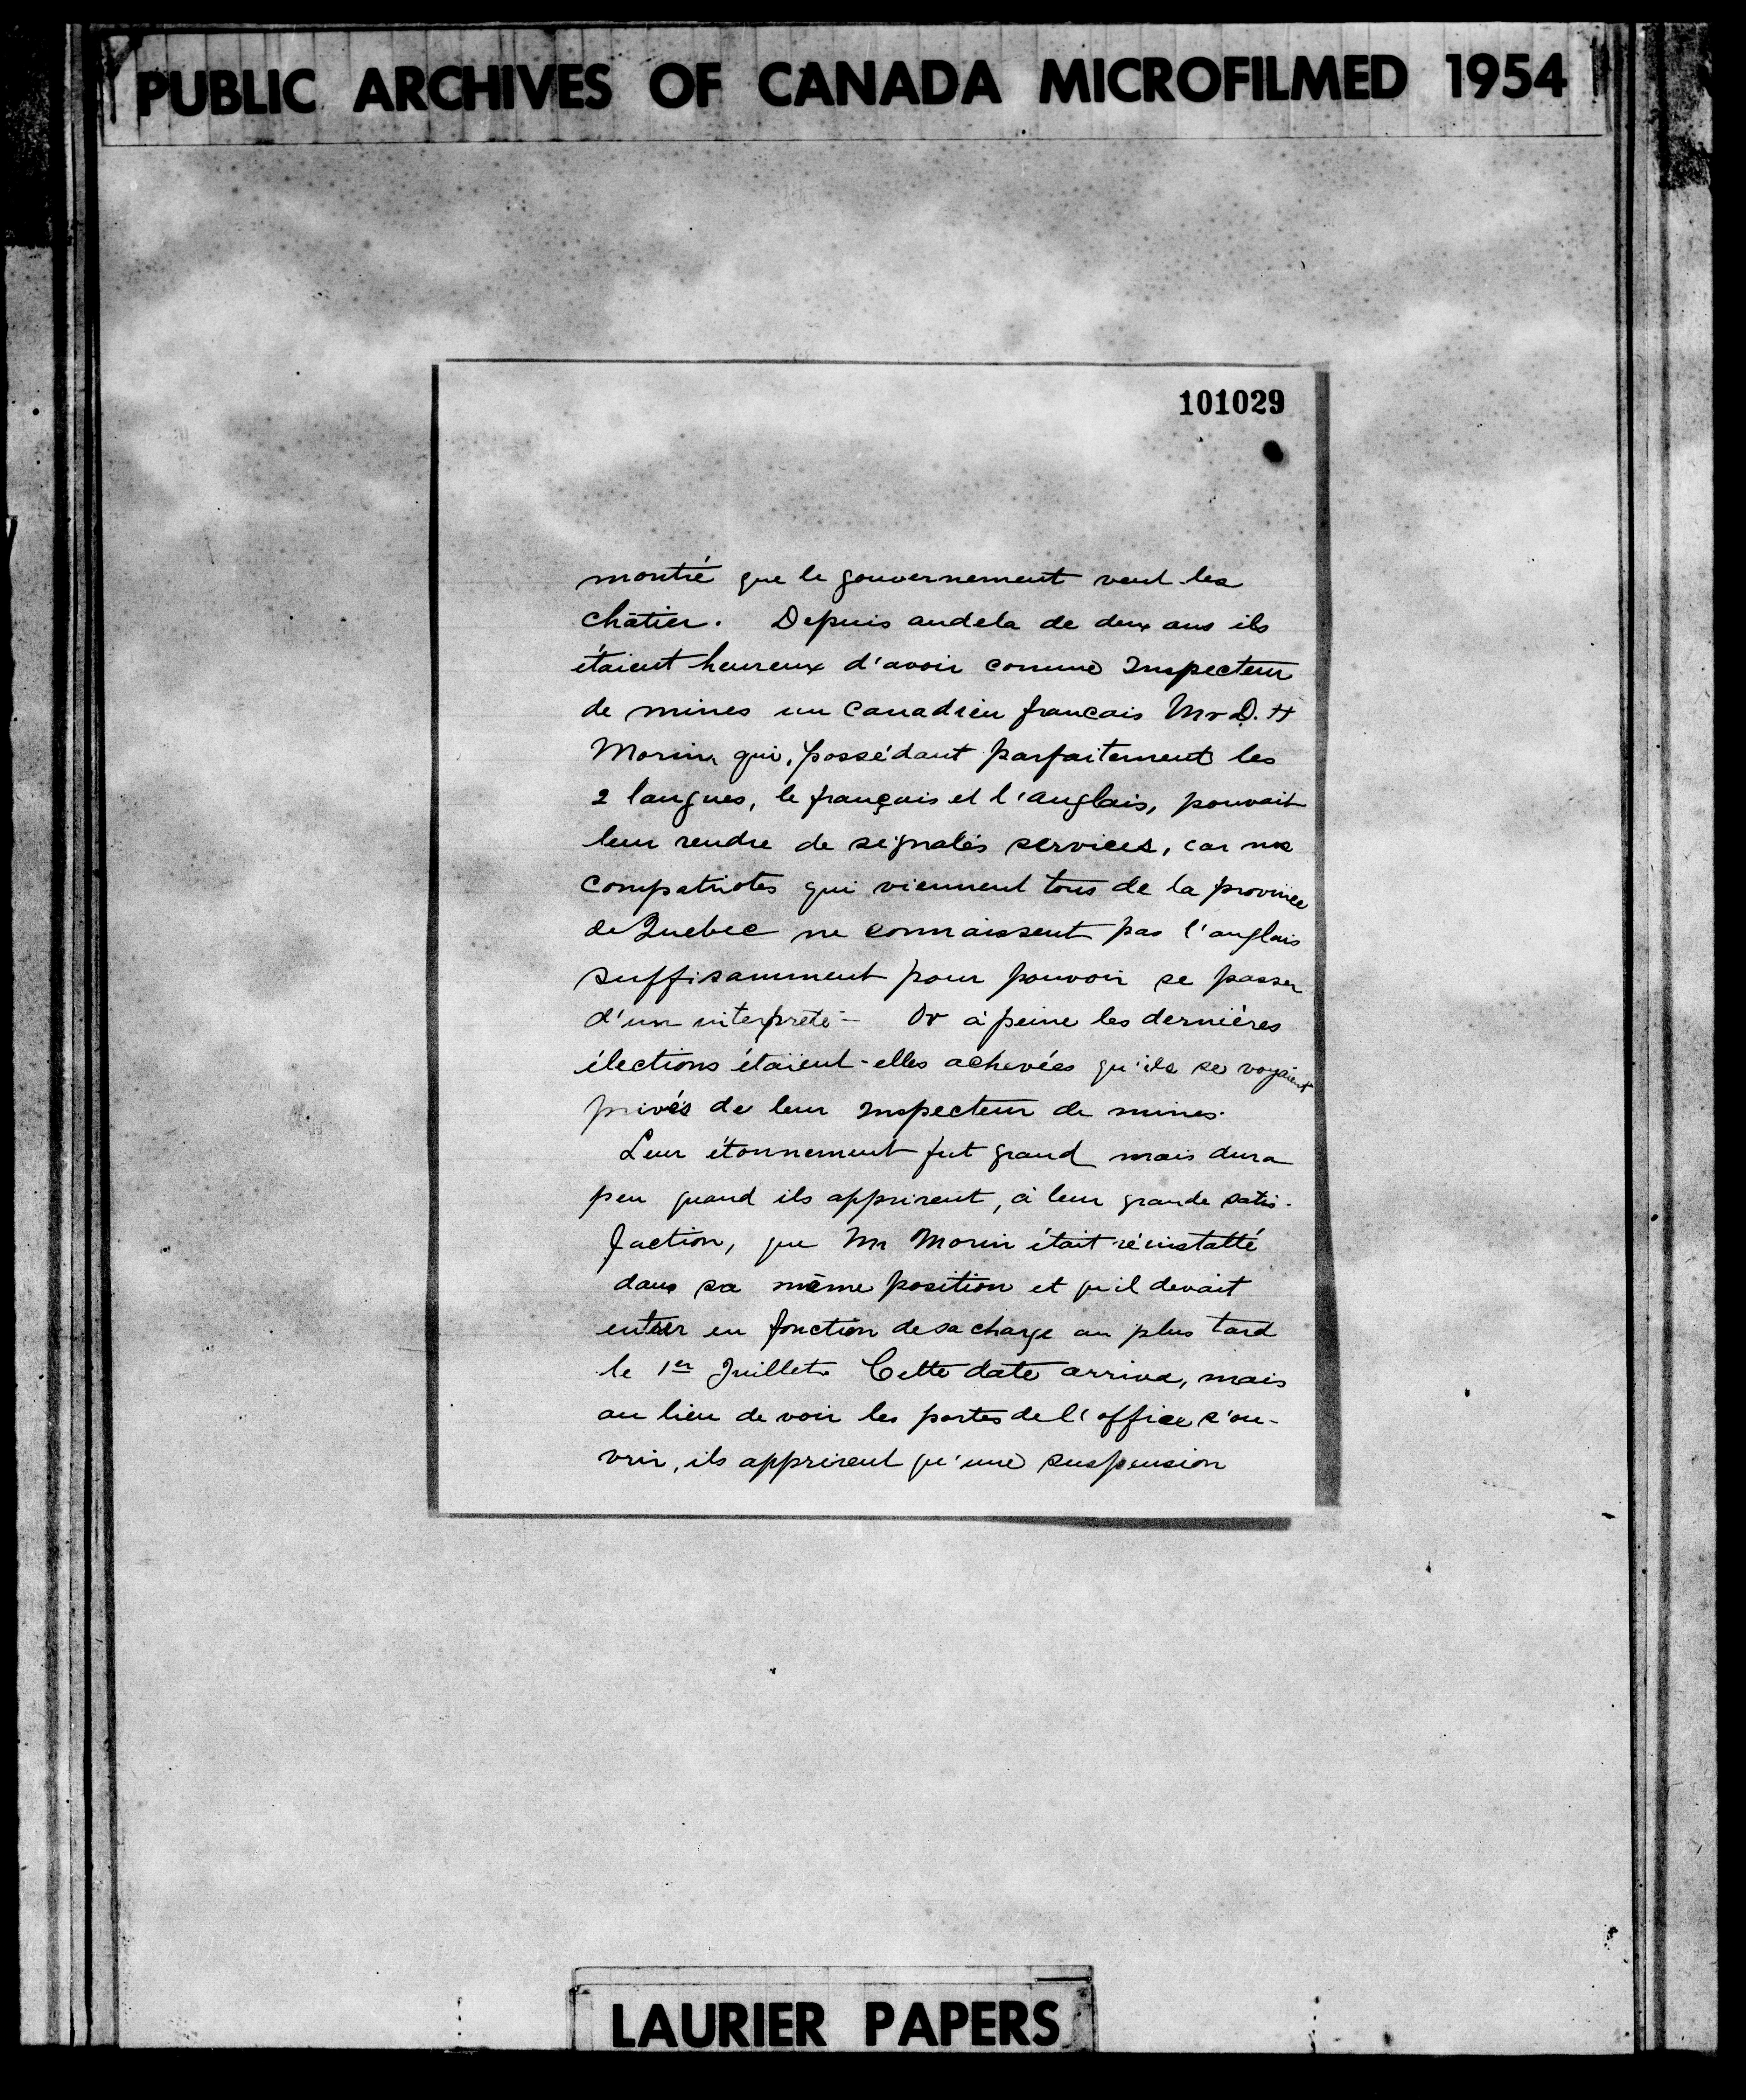 PUBLIC ARCHIVES OF CANADA MICROFILMED 1954
101029
montré que le gouvernement veut les
châtier. Depuis audela de deux ans ils
étaient heureux d'avoir comme Inspecteur
de mines un Canadien francais Mr D. H
Morin qui, possédant parfaitement les
2 langues, le français et l'anglais, pouvait
leur rendre de signalés services, car nos
compatriotes qui viennent tous de la province
de Quebec ne connaissent pas l'anglais
suffisamment pour pouvoir se passer
d'un interprète - Or à peine les dernières
élections étaient-elles achevées qu'ils se voyaient
privés de leur Inspecteur de mines.
Leur étonnement fut grand mais dura
peu quand ils apprirent, à leur grande satis-
faction, que Mr Morin était réinstallé
dans sa même position et qu'il devait
entrer en fonction de sa charge au plus tard
le 1er Juillet. Cette date arriva, mais
au lieu de voir les portes de l'office s'ou-
vrir, ils apprirent qu'une suspension
LAURIER PAPERS